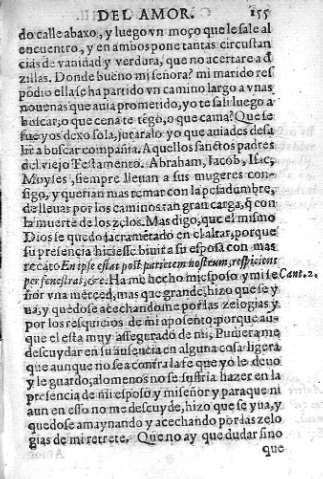 DEL AMOR. 155
do calle abaxo, y luego vn moço que le sale al
encuentro, y en ambos pone tantas circustan
cias de vanidad y verdura, que no acertare a
zillas. Donde bueno mi señora? mi marido res
põdio ella se ha partido vn camino largo a vnas
nouenas que auia prometido, yo te sali luego a
buscar, o que cena te tẽgo, o que cama? Que se
fue y os dexo sola, jutaralo yo que auiades desa
lir a buscar compañia. Aquellos sanctos padres
del viejo Testamento. Abraham, Iacob, Isac,
Moyses, siempre lleuan a sus mugeres con-
sigo, y querian mas remar con la pesadumbre,
de lleuar por los caminos tan gran carga, q̃ con
la muerte de los zelos. Mas digo, que el mismo
Dios se quedo sacramẽtado en el altar, porque
su presencia hiziesse biuir a su esposa con mas
recato En ipse estat post parietem nostrum, respiciens
per fenestras, &c. Ha me hecho mi esposo y mi se Cant. 2.
ñor vna merced, mas que grande, hizo que se y
ua, y quedose acechandome por las zelogias y
por los resquicios de mi aposento: porque au-
que el esta muy assegurado de mi, Pudierame
descuydar en su ausencia en alguna cosa ligera
que aunque no sea contra la fe que yo le deuo
y le guardo, alomenos no se sufria hazer en la
presencia de mi esposo y mi señor y para que ni
aun en esso no me descuyde, hizo que se yua, y
quedose amaynando y acechando por las zelo
gias de mi retrete. Que no ay que dudar sino
que